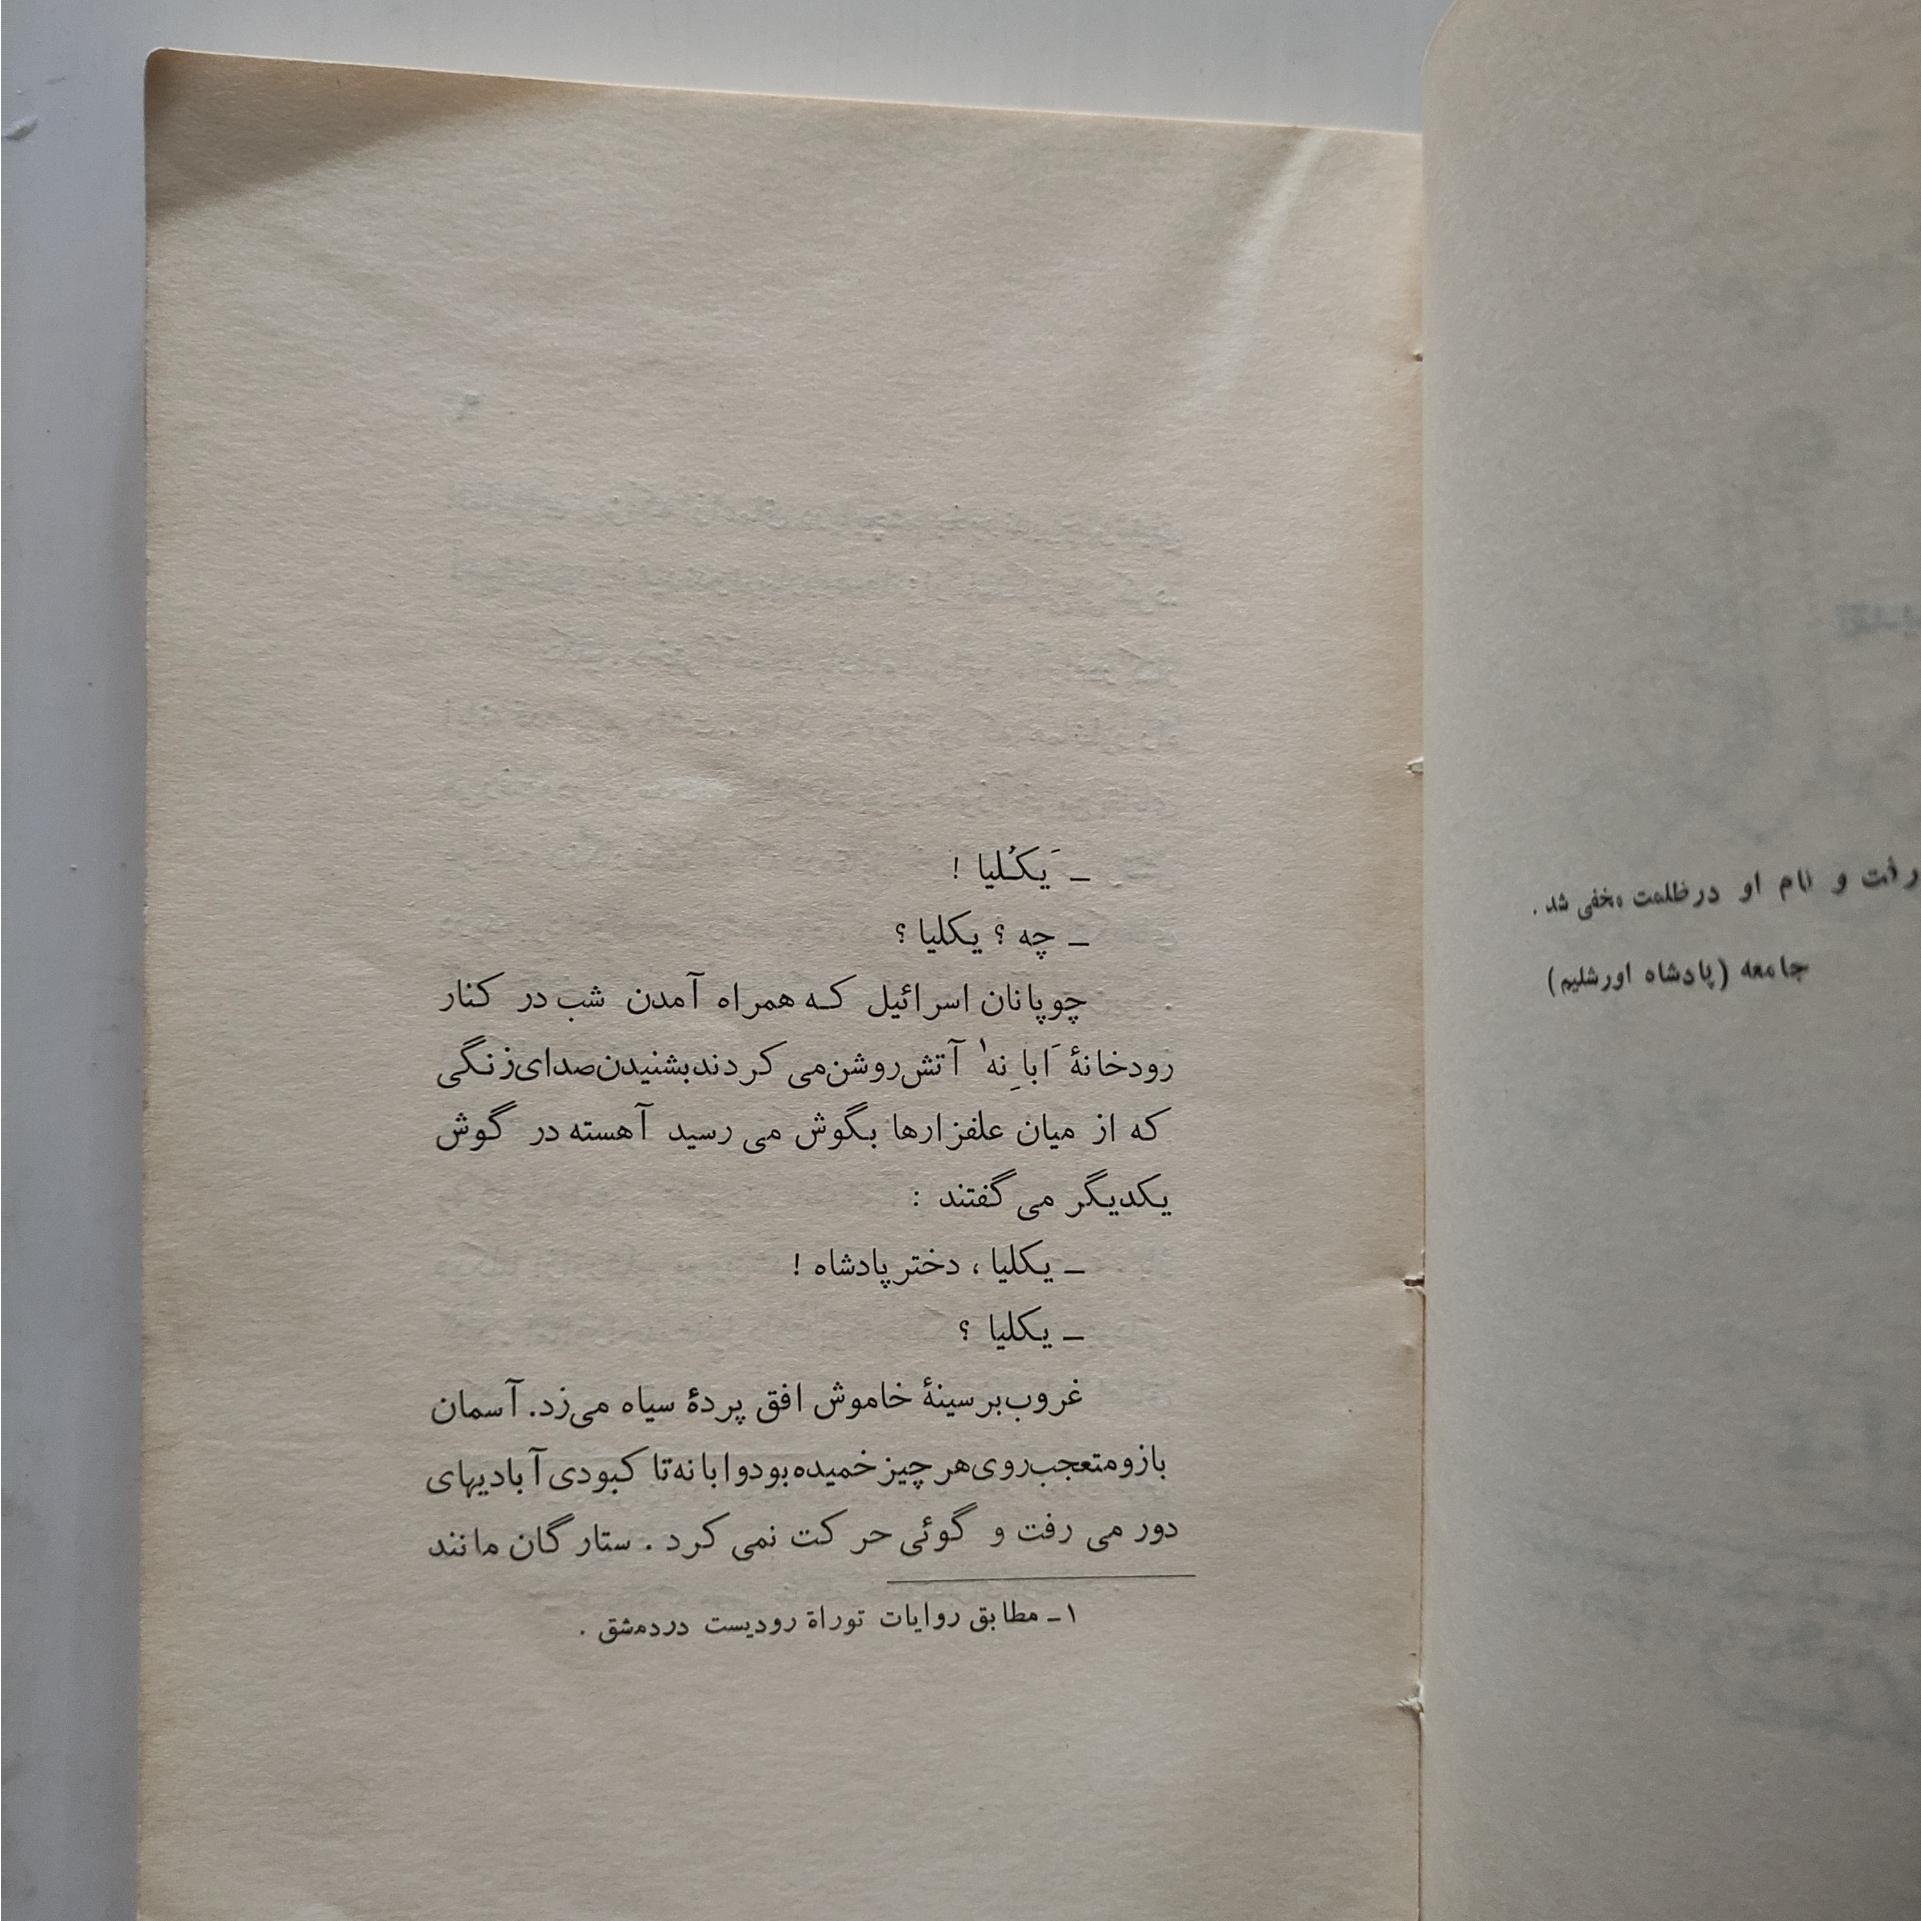 رفت و نام او در ظلمت مخفی شد .
جامعه (پادشاه اورشلیم)
ـ َیکـُلیا !
ـ چه ؟ یکلیا ؟
چوپانان اسرائیل کـه همراه آمدن شب در کنار
رودخانهٔ اَبا نِه۱ آتش روشن می کردند بشنیدن صدای زنگی
که از میان علفزارها بگوش می رسید آهسته در گوش
یکدیگر می گفتند :
ـ یکلیا ، دختر پادشاه !
ـ یکلیا ؟
غروب بر سینهٔ خاموش افق پردهٔ سیاه می‌زد. آسمان
باز و متعجب روی هر چیز خمیده بود و ابانه تا کبودی آبادیهای
دور می رفت و گوئی حرکت نمی کرد . ستارگان مانند
۱ـ مطابق روایات توراة رودیست در دمشق .